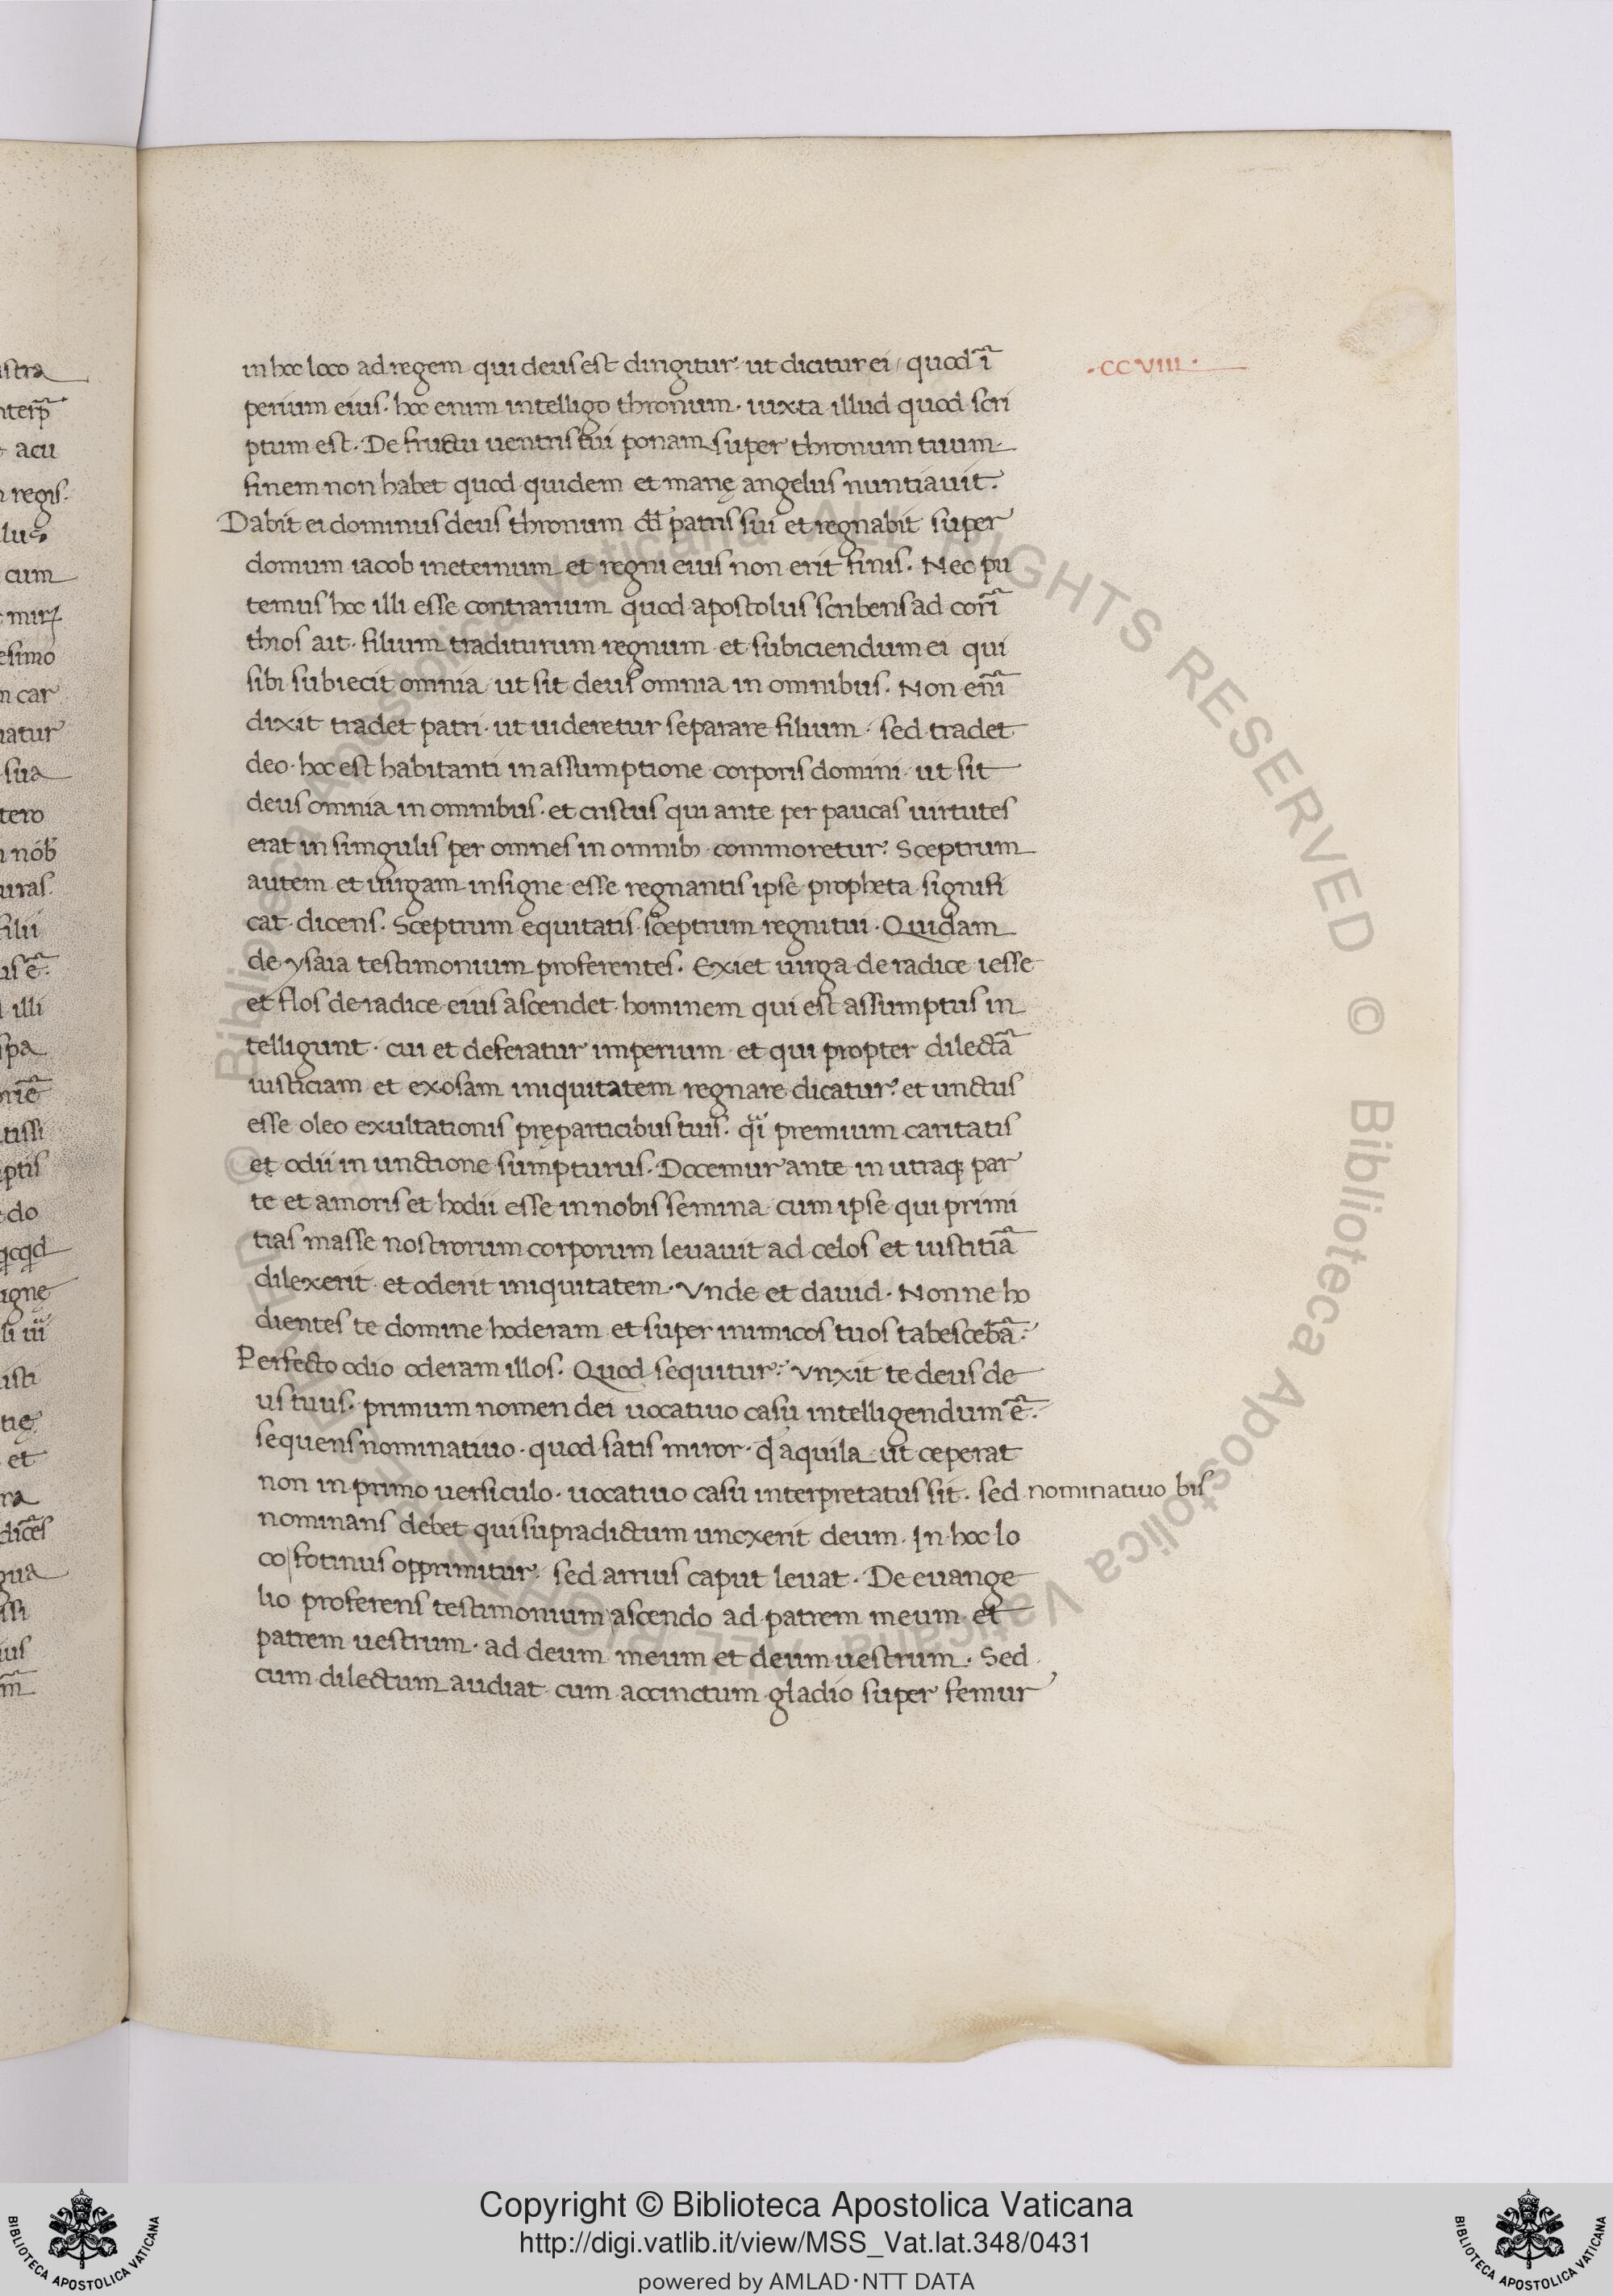 ·CCVIII·
in hoc loco ad regem qui deus est dirigitur· ut dicitur ei / quod ī
perium eius· hoc enim intelligo thronum· iuxta illud quod scri
ptum est· De fructu uentris tui ponam super thronum tuum·
finem non habet quod quidem et marię angelus nuntiauit·
Dabit ei dominus deus thronum dd̄ patris sui et regnabit super
domum iacob ineternum et regni eius non erit finis· Nec pu
temus hoc illi esse contrarium quod apostolus scribens ad corī
thios ait· filium traditurum regnum et subiciendum ei qui
sibi subiecit omnia ut sit deus omnia in omnibus· Non enī
dixit tradet patri· ut uideretur separare filium· sed tradet
deo· hoc est habitanti in assumptione corporis domini· ut sit
deus omnia in omnibus· et cristus qui ante per paucas uirtutes
erat in simgulis per omnes in omnib; commoretur· Sceptrum
autem et uirgam insigne esse regnantis ipse propheta signifi
cat dicens· Sceptrum equitatis sceptrum regni tui· Quidam
de ysaia testimonium proferentes· Exiet uirga de radice iesse
et flos de radice eius ascendet hominem qui est assumptus in
telligunt· cui et deferatur imperium et qui propter dilectā
iusticiam et exosam iniquitatem regnare dicatur· et unctus
esse oleo exultationis pręparticibus tuis· qͣi premium caritatis
et odii in unctione sumpturus· Docemur ante in utraq; par
te et amoris et hodii esse in nobis semina cum ipse qui primi
tias masse nostrorum corporum leuauit ad celos et iustitiā
dilexerit et oderit iniquitatem· Vnde et dauid· Nonne ho
dientes te domine hoderam et super inimicos tuos tabescebā·
Perfecto odio oderam illos· Quod sequitur· Vnxit te deus de
us tuus· primum nomen dei uocatiuo casu intelligendum ē·
sequens nominatiuo· quod satis miror· qđ aquila ut ceperat
non in primo uersiculo· uocatiuo casu interpretatus sit· sed nominatiuo bis
nominans debet qui supradictum uncxerit deum· In hoc lo
co fotinus opprimitur· sed arrius caput leuat· De euange
lio proferens testimonium ascendo ad patrem meum et
patrem uestrum· ad deum meum et deum uestrum· Sed
cum dilectum audiat cum accinctum gladio super femur
Copyright © Biblioteca Apostolica Vaticana
http://digi.vatlib.it/view/MSS_Vat.lat.348/0431
powered by AMLAD·NTT DATA